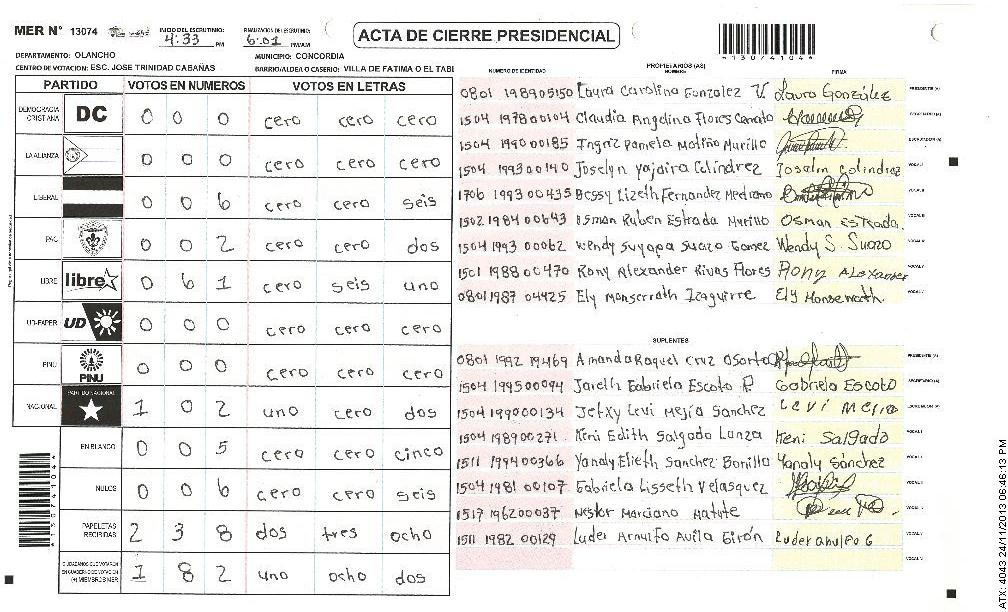 MER N° 13074
INICIO DEL ESCRUTINIO: 4:33 PM
FINALIZACION DEL ESCRUTINIO: 6:01 PM/AM
ACTA DE CIERRE PRESIDENCIAL
*13074104*
DEPARTAMENTO: OLANCHO
MUNICIPIO: CONCORDIA
CENTRO DE VOTACION: ESC. JOSE TRINIDAD CABAÑAS
BARRIO/ALDEA O CASERIO: VILLA DE FATIMA O EL TABI
PARTIDO VOTOS EN NUMEROS VOTOS EN LETRAS
DEMOCRACIA CRISTIANA DC 0 0 0 cero cero cero
LA ALIANZA 0 0 0 cero cero cero
LIBERAL 0 0 6 cero cero seis
PAC 0 0 2 cero cero dos
LIBRE libre 0 6 1 cero seis uno
UD-FAPER UD 0 0 0 cero cero cero
PINU PINU 0 0 0 cero cero cero
NACIONAL PARTIDO NACIONAL 1 0 2 uno cero dos
EN BLANCO 0 0 5 cero cero cinco
NULOS 0 0 6 cero cero seis
PAPELETAS RECIBIDAS 2 3 8 dos tres ocho
CIUDADANOS QUE VOTARON EN CUADERNO DE VOTACION (+) MIEMBROS MER 1 8 2 uno ocho dos
*13074104*
PROPIETARIOS (AS)
NUMERO DE IDENTIDAD NOMBRE FIRMA
0801 198905150 Laura Carolina Gonzalez V. Laura González PRESIDENTE (A)
1504 197800104 Claudia Angelina Flores SECRETARIO (A)
1504 199000185 Ingriz Pamela Moliño Murillo ESCRUTADOR (A)
1504 199300140 Joselyn Yajaira Colindrez Joselin Colindrez VOCAL I
1706 1993 00435 Bessy Lizeth Fernandez Medrano VOCAL II
1502 1984 00643 Osman Ruben Estrada Murillo Osman Estrada.
1504 1993 00062 Wendy Suyapa Suazo Gomez Wendy S. Suazo
1501 1988 00470 Rony Alexander Rivas Flores Rony Alexander
0801 1987 04425 Ely Monserrath Izaguirre Ely Monserrath.
SUPLENTES
0801 1992 19469 Amanda Raquel Cruz Osorto PRESIDENTE (A)
1504 199500094 Gabriela Escoto Gabriela Escoto SECRETARIO (A)
1504 199000134 Levi Mejia Sanchez Levi Mejia ESCRUTADOR (A)
1504 198900271 Keni Edith Salgado Lanza Keni Salgado VOCAL I
1511 199400366 Elieth Sanchez Bonilla Sánchez
1504 1981 00107 Gabriela Lisseth Velasquez
1517 196200037 Nestor Marciano Matute
1511 1982 00129 Luder Arnulfo Avila Girón
ATX: 4043 24/11/2013 06:46:13 PM